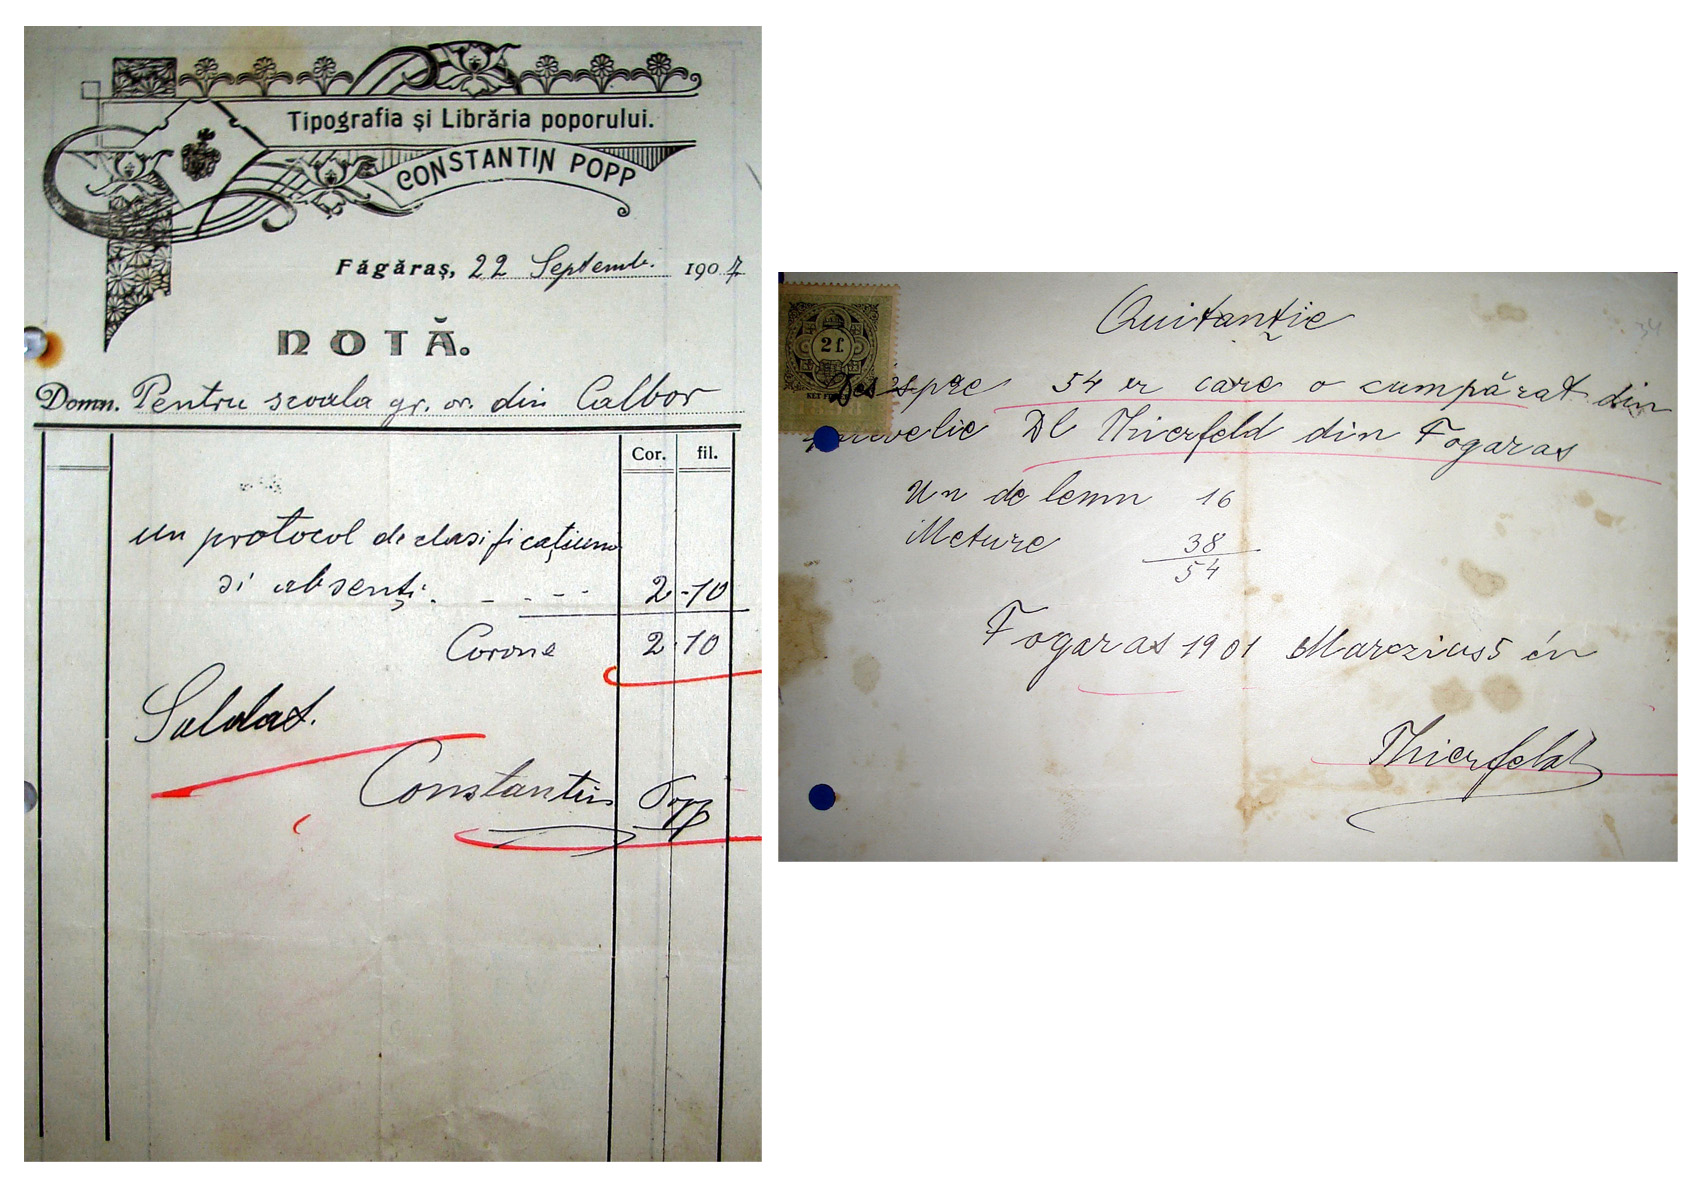 Tipografia și Librăria poporului.
CONSTANTIN POPP
Făgăraș, 22 Septemb. 1907
NOTĂ.
Domn. Pentru scoala gr. or. din Calbor
Cor. fil.
un protocol de clasificațiune
si absenți. - - - - 2 - 10
Corone 2 · 10
Soldat.
Constantin Popp
34
Quitanție
2 f.
Despre 54 xr care o cumpărat din
Dl Thierfeld din Fogaras
Un de lemn 16
Meture 38
54
Fogaras 1901 Marczius 5 én
Thierfeld